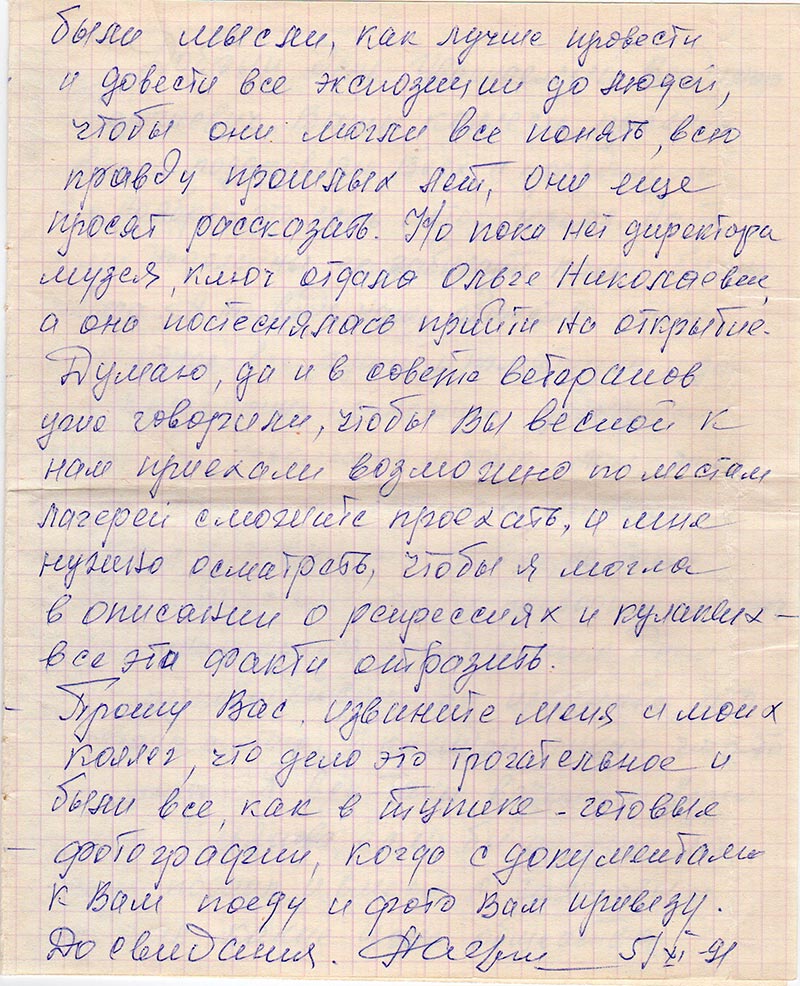 были мысли, как лучше провести
и довести все экспозиции до людей,
чтобы они могли все понять, всю
правду прошлых лет, они еще
просят рассказать. Но пока нет директора
музея, ключ отдала Ольге Николаевне,
а она постеснялась прийти на открытие.
Думаю, да и в совете ветеранов
уже говорили, чтобы Вы весной к
нам приехали возможно по местам
лагерей сможете проехать, и мне
нужно осмотреть, чтобы я могла
в описании о репрессиях и кулаках –
все эти факти отразить.
Прошу Вас. извините меня и моих
коллег, что дело это трогательное и
были все, как в тупике – готовые
фотографии, когда с документами
к Вам поеду и фото Вам привезу.
До свидания. 5/XI-91